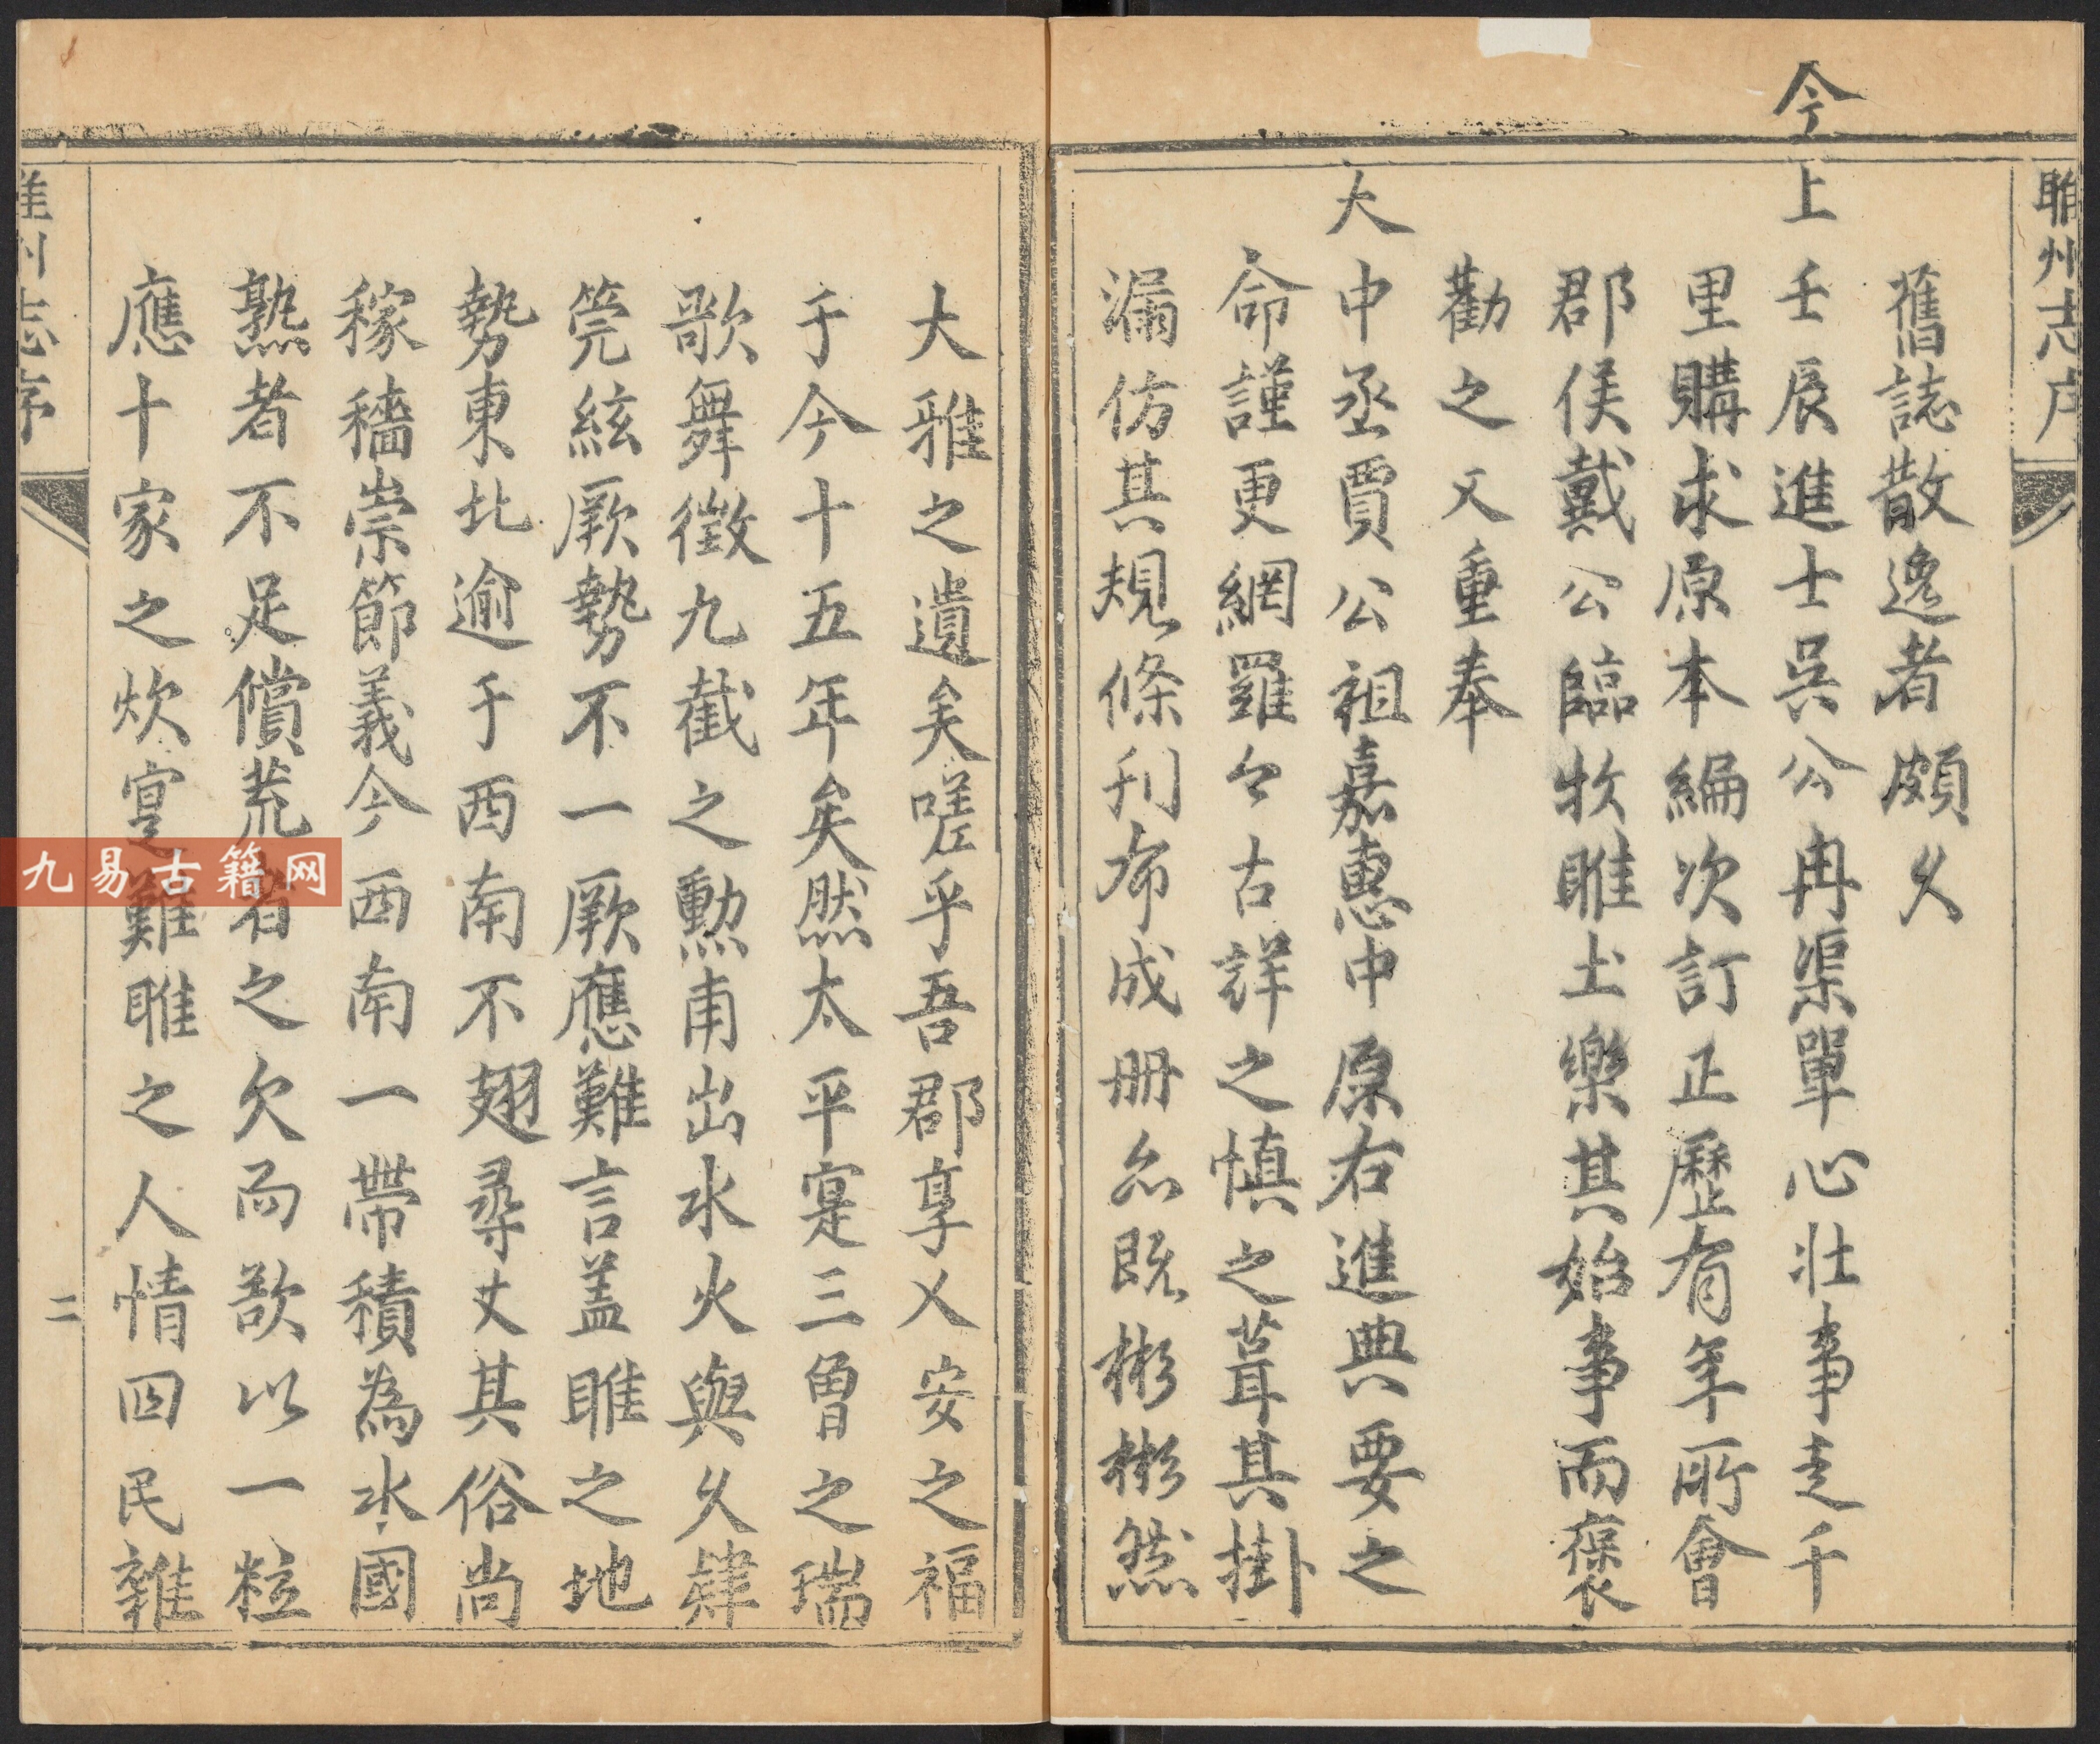 睢州志序
舊誌散逸者頗久
今上壬辰進士吳公冉渠單心壯事走千
里購求原本編次訂正歷有年所會
郡侯戴公臨牧睢土樂其始事而襃
勸之又重奉
大中丞賈公祖嘉惠中原右進典要之
命謹更網羅今古詳之慎之葺其掛
漏仿其規條刊布成册亦既彬彬然
大雅之遺矣嗟乎吾郡享乂安之福
于今十五年矣然太平寔三曾之瑞
歌舞徵九截之勲甫出水火與久肄
筦絃厥勢不一厥應難言盖睢之地
勢東北逾于西南不翅尋丈其俗尚
稼穡崇節義今西南一帶積為水國
熟者不足償荒者之欠而欲以一粒
應十家之炊寔難睢之人情四民雜
睢州志序
二
九易古籍网